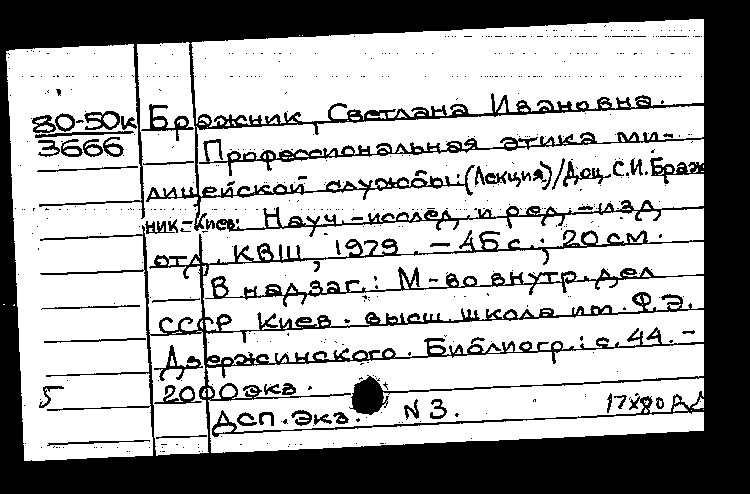 80-50к
3666
Бражник, Светлана Ивановна.
Профессиональная этика ми-
лицейской службы: (Лекция)/Доц. С.И. Браж
ник.-Киев: Науч.-исслед. и ред.-изд.
отд. КВШ, 1979. – 45 с.; 20 см.
В надзаг.: М-во внутр. дел
СССР, Киев. высш. школа им. Ф.Э.
Дзержинского. Библиогр.: с. 44. –
2000 экз.
5
ДСП. Экз. N 3.